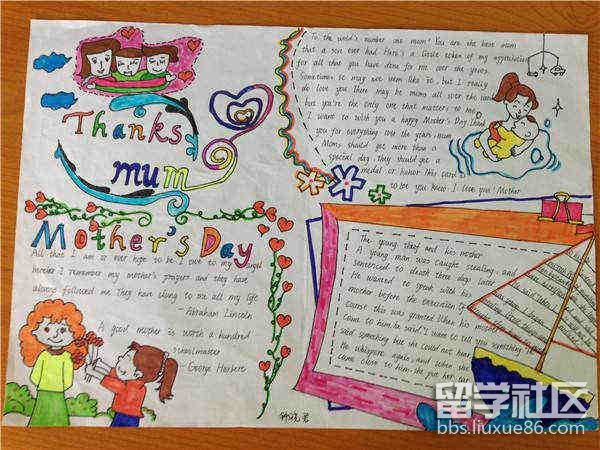 Thanks
mum
To the world's number one mum! You are the best mum
that a son ever had. Here's a little token of my appreciation
for all that you have done for me over the years.
Sometimes it may not seem like it, but I really
do love you. There may be mums all over the
but you're the only one that matters to me.
I want to wish you a happy Mother's Day,
you for everything over the years mum
Mums should get more than a
special day. They should get a
medal or honor. This card is
to let you know I love you! Mother
Mother's Day
All that I am or ever hope to be I owe to my angel
I remember my mother's prayers and they have
always followed me. They have clung to me all my life
—Abraham Lincoln
A good mother is worth a hundred
schoolmaster
—George Herbert
The young thief and his mother
A young man was caught stealing and
sentenced to death three days later
He wanted to speak with his
mother before the execution of
course this was granted. When his mother
came to him he said "I want to tell you something" He
said something but she could not hear
He whispered again and when she
came close to him she put her
留学社区
bbs.liuxue86.com